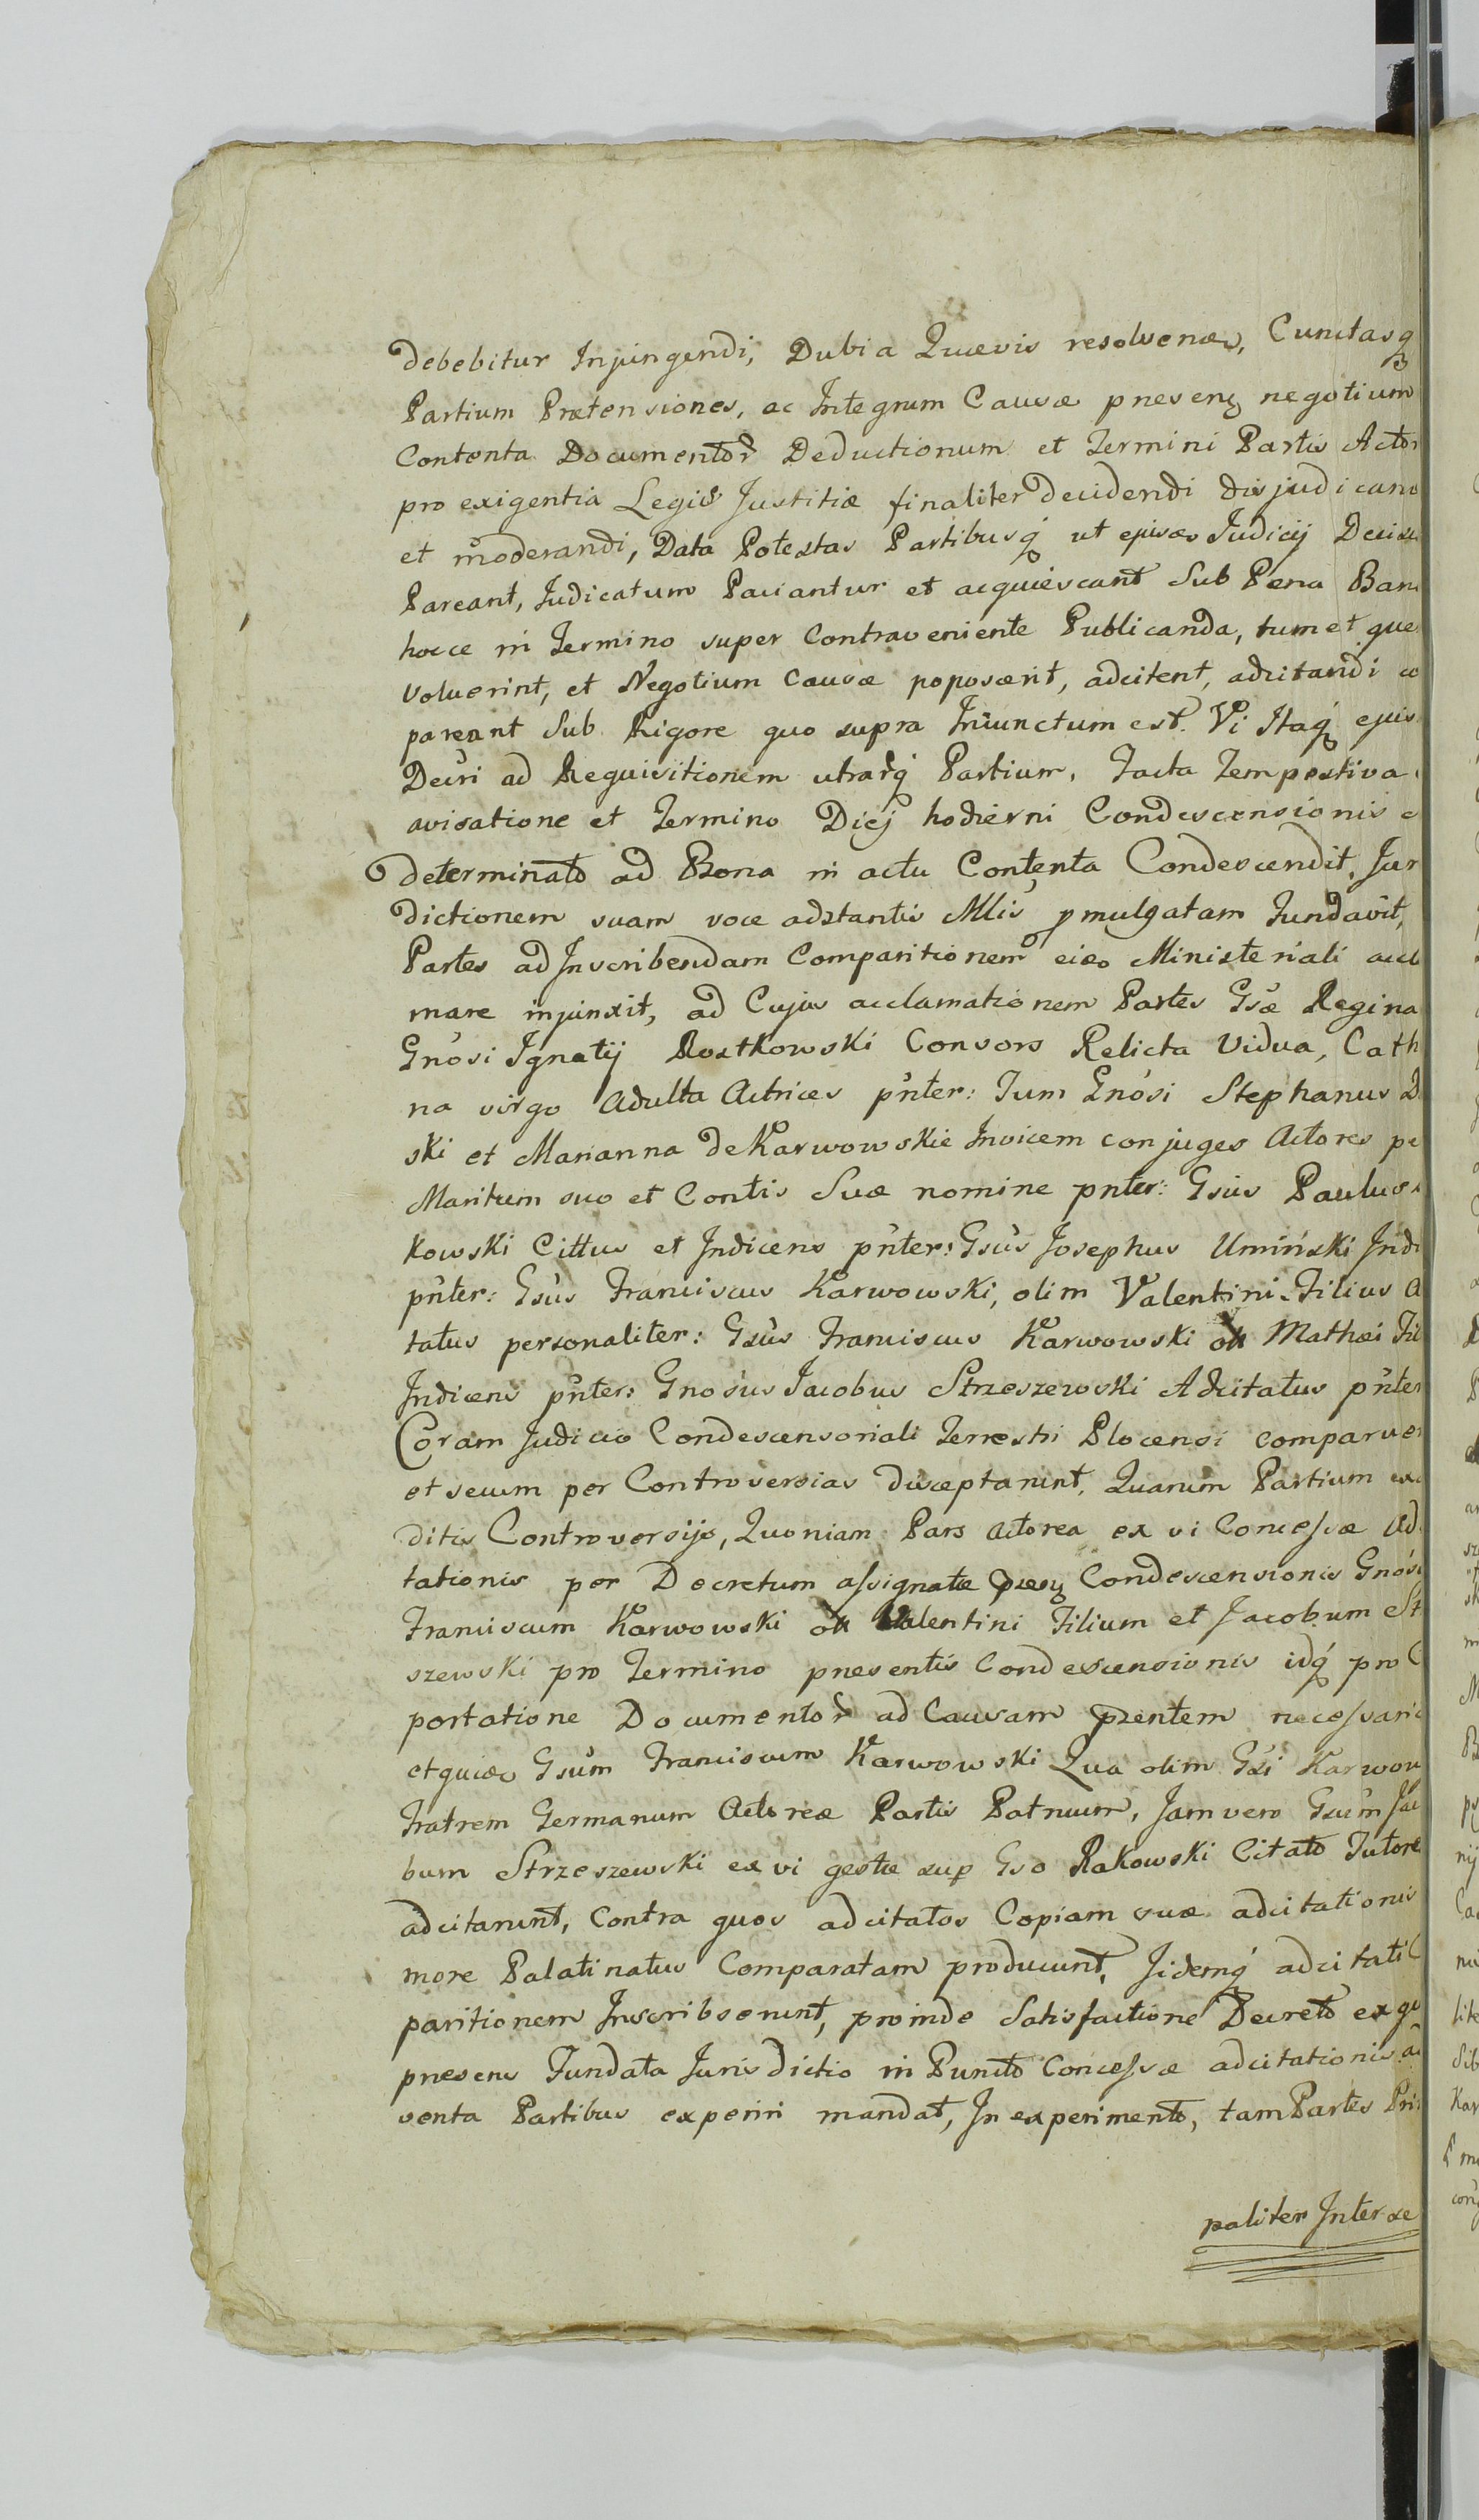 debebitur Injungendi, Dubia Quævis resolvendi, Cunctasq
Partium Prætensiones, ac Integrum Causæ præsens negotium
Contenta Documentor Deductionum et Termini Partis Actor
pro exigentia Legis Justitiæ finaliter decidendi disjudicand
et moderandi, Data Potestas Partibusq ut ejus Judicij Decis
Pareant, Judicatum Paciantur et acquiescant Sub Pena Ban
hocce in Termino super Contraveniente Publicanda, tum et que
voluerint, et Negotium Causæ poposcerit, adcitent, adcitandi co
pareant Sub Rigore quo supra Iniunctum est. Vi Itaq ejus
Decri ad Requisitionem utrarq Partium, Facta Tempestiva
avisatione et Termino Diej hodierni Condescensionis
determinato ad Bona in actu Contenta Condescendit, Jur
dictionem suam voce adstantis Mlis pmulgatam Fundavit,
Partes ad Inscribendam Comparitionem Ministeriali accl
mare injunxit, ad Cujus acclamationem Partes Gsæ Regina
Gnosi Ignatij Rostkowski Consors Relicta Vidua, Cath
na virgo Adulta Actrices pnter: Tum Gnosi Stephanus
ski et Marianna de Karwowskie Invicem conjuges Actores pe
Maritum suo et Contis Suæ nomine pnter: Gsus Paulus
kowski Cittus et Indicens pnter: Gsus Josephus Umiński Indi
pnter: Gsus Franciscus Karwowski, olim Valentini Filius A
tatus personaliter: Gsus Franciscus Karwowski ol Mathæi Fil
Indicens pnter: Gnosus Jacobus Strzeszewski Adcitatus pnter
Coram Judicio Condescensoriali Terrestri Plocensi comparuer
et secum per Controversias disceptarunt, Quarum Partium exau
ditis Controversijs, Quoniam Pars Actorea ex vi Concessæ Ad
tationis per Decretum assignatæ præs Condescensionis Gnos
Franciscum Karwowski ol Valentini Filium et Jacobum St
szewski pro Termino presentis Condescensionis idq pro
portatione Documentor ad Causam pzentem necessario
et quidem Gsum Franciscum Karwowski Qua olim Gsi Karwow
Fratrem Germanum Actoreæ Partis Patruum, Jam vero Gsum Jac
bum Strzeszewski ex vi gestæ sup Gso Rakowski Citato Tutore
adcitarunt, Contra quos adcitatos Copiam suæ adcitationis
more Palatinatus Comparatam producunt, Iidemq adcitati
paritionem Inscribserunt, proinde Satisfactione Decreto ex qu
presens Fundata Jurisdictio in Puncto Concessæ adcitationis
venta Partibus experiri mandat, In experimento, tam Partes Prin
paliter Inter se